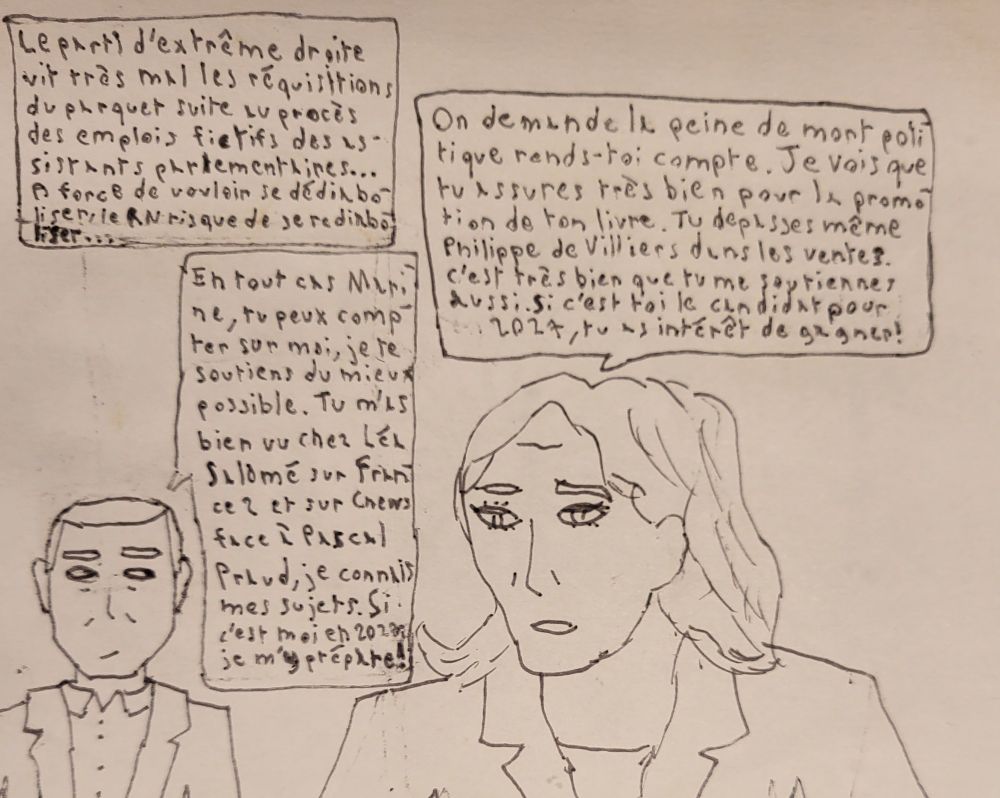 Le parti d'extrême droite
vit très mal les réquisitions
du parquet suite au procès
des emplois fictifs des as-
sistants parlementaires...
A force de vouloir se dédiabo-
liser, le RN risque de se rediabo-
liser...
On demande la peine de mort poli-
tique rends-toi compte. Je vois que
tu assures très bien pour la promo-
tion de ton livre. Tu dépasses même
Philippe de Villiers dans les ventes.
c'est très bien que tu me soutiennes
aussi. Si c'est toi le candidat pour
2027, tu as intérêt de gagner!
En tout cas Mari-
ne, tu peux comp-
ter sur moi, je te
soutiens du mieux
possible. Tu m'as
bien vu chez Léa
Salamé sur Fran-
ce 2 et sur Cnews
face à Pascal
Praud, je connais
mes sujets. Si
c'est moi en 2027,
je m'y prépare!